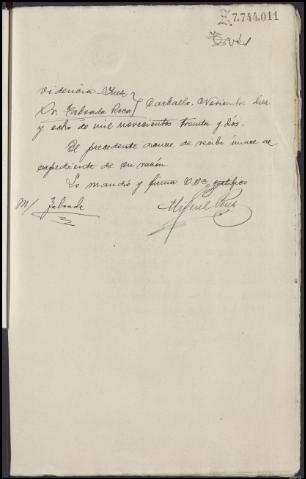 7.744.011
videncia Juez
Sr. Taboada Roca } Carballo, Noviembre diez
y ocho de mil novecientos treinta y dos.
El precedente acuse de recibo únase al
expediente de su razón
Lo mandó y firma S.Sª, certifico
M/ Taboada
Miguel